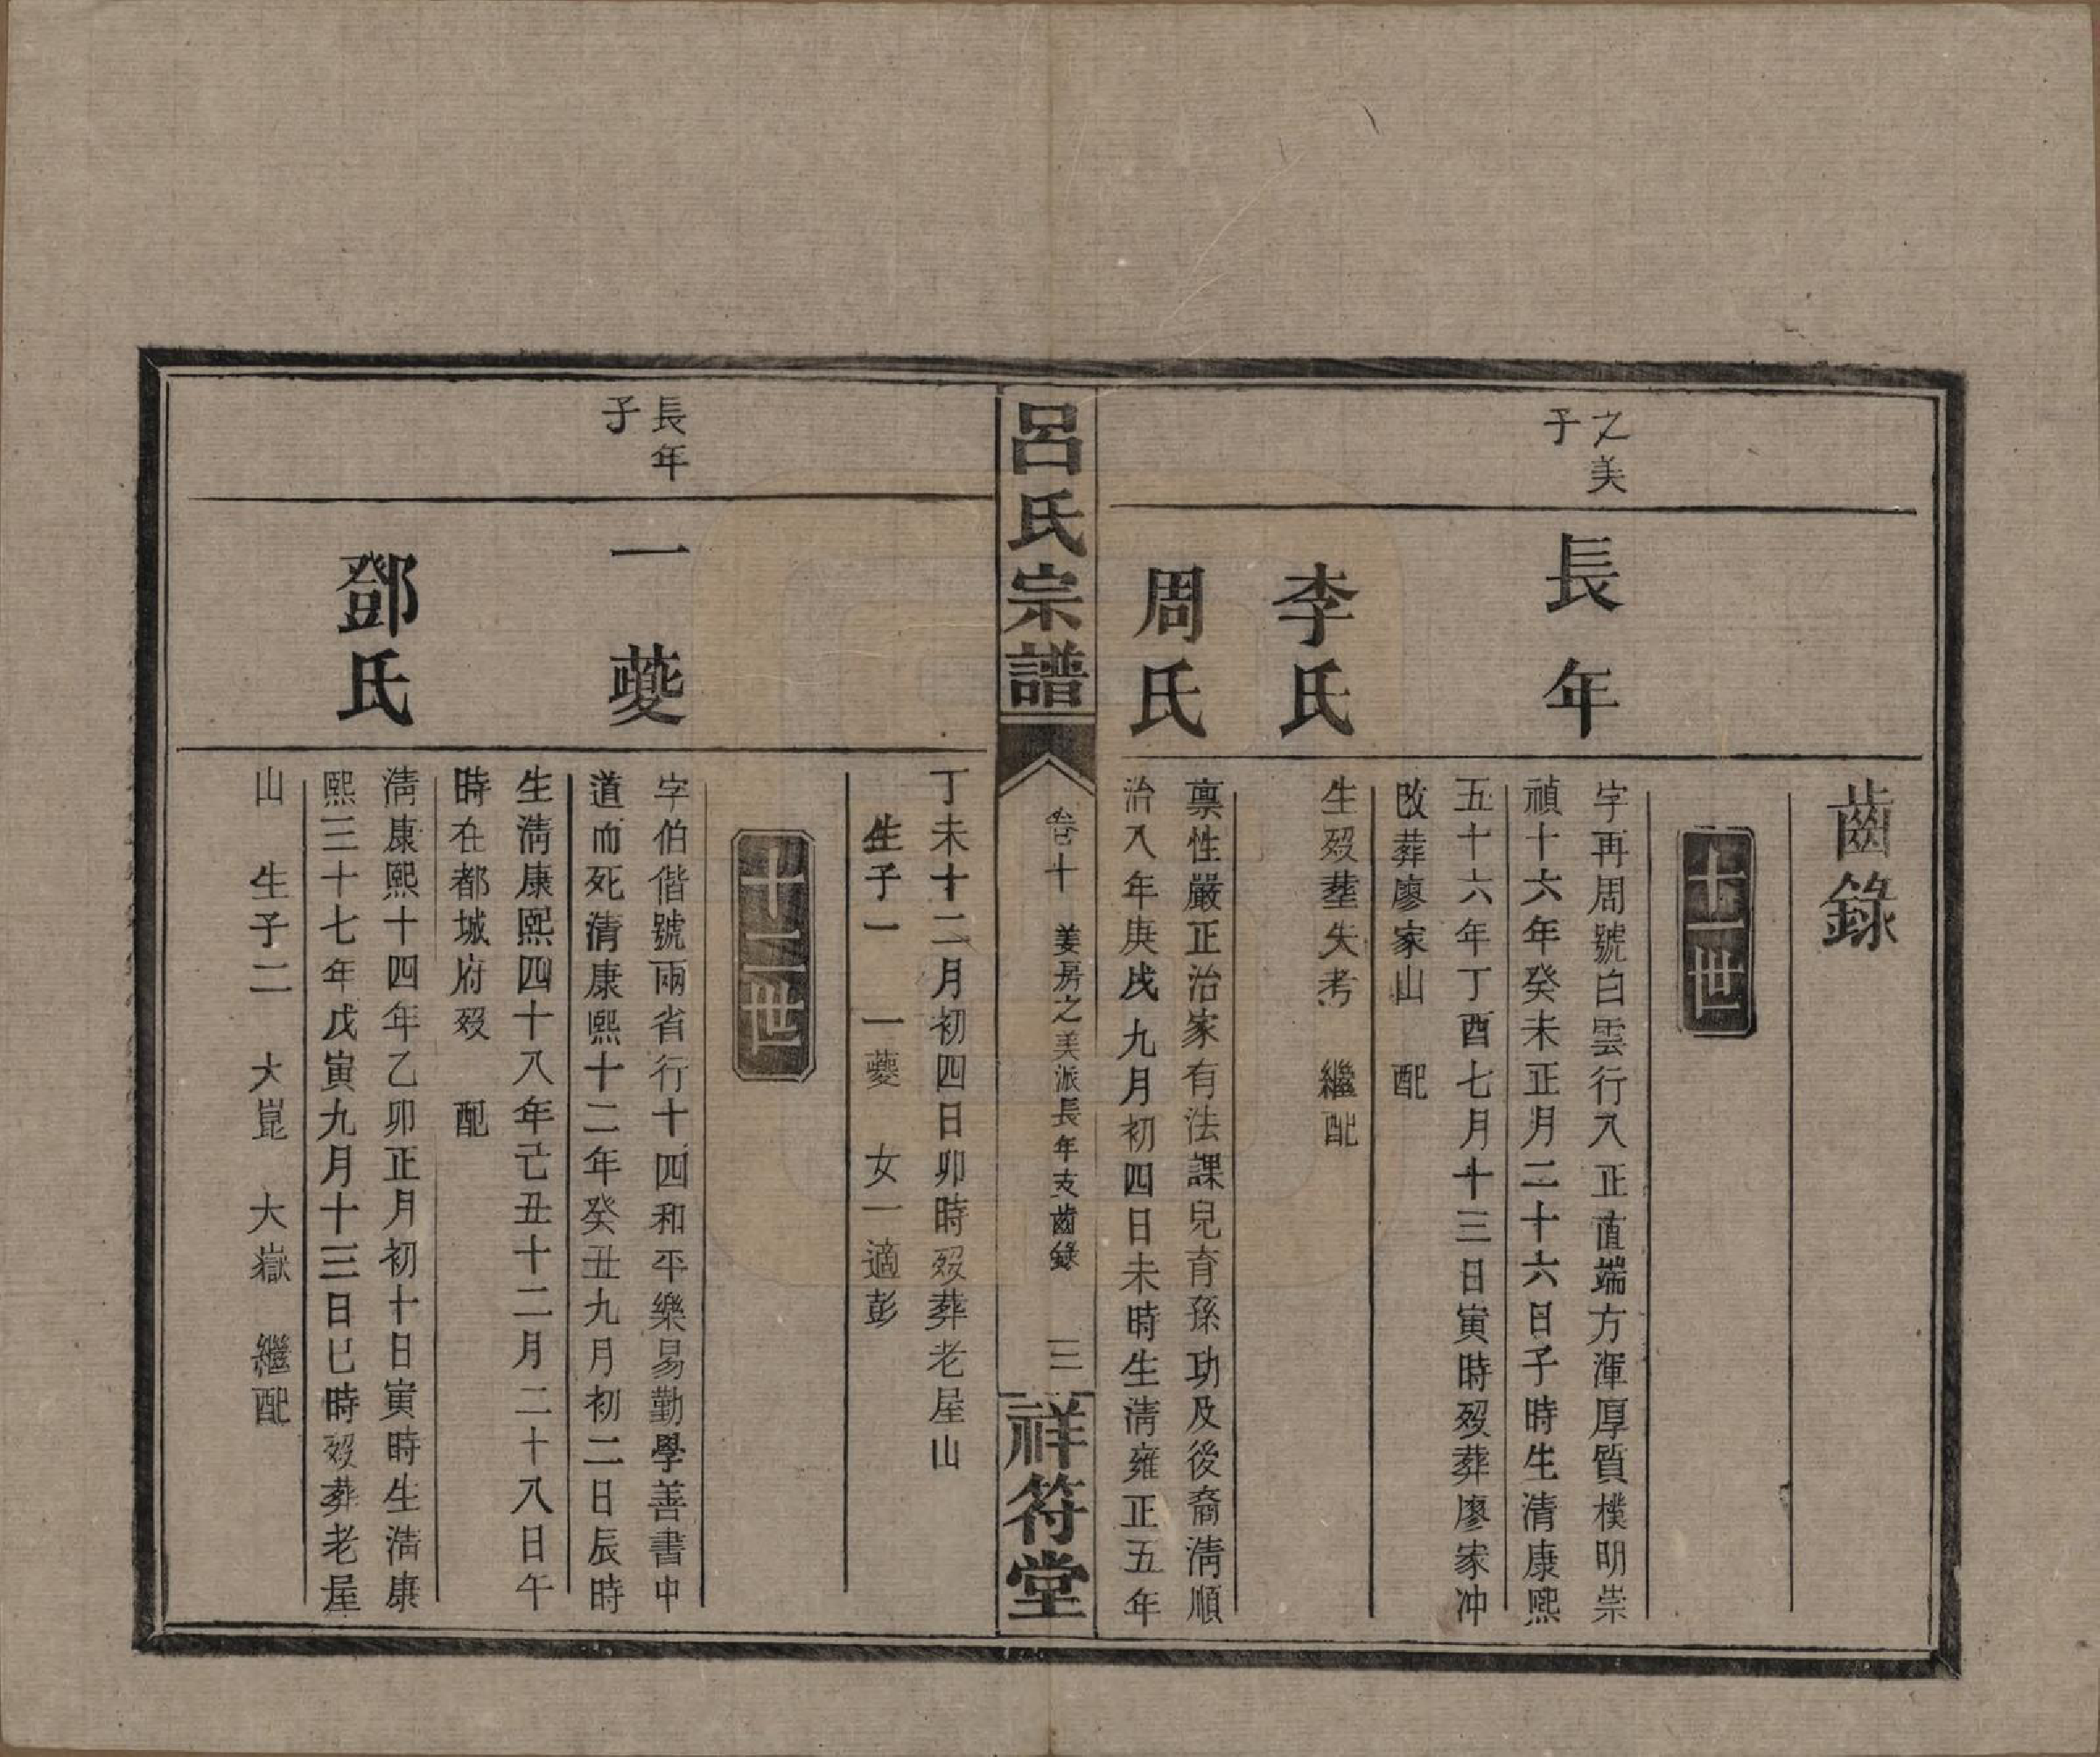 齒錄
十一世
之美
子
長年
字再周號白雲行八正直端方渾厚質樸明崇
禎十六年癸未正月二十六日子時生清康熙
五十六年丁酉七月十三日寅時歿葬廖家冲
改葬廖家山 配
李氏
生歿葬失考 繼配
周氏
禀性嚴正治家有法課兒育孫功及後裔淸順
治八年庚戌九月初四日未時生淸雍正五年
呂氏宗譜
卷十 姜房之美派長年支齒錄 三
祥符堂
丁未十二月初四日卯時歿葬老屋山
生子一 一夔 女一適彭
十二世
長年
子
一夔
字伯偕號兩省行十四和平樂易勤學善書中
道而死清康熙十二年癸丑九月初二日辰時
生淸康熙四十八年己丑十二月二十八日午
時在都城府歿 配
鄧氏
淸康熙十四年乙卯正月初十日寅時生淸康
熙三十七年戊寅九月十三日巳時歿葬老屋
山 生子二 大崑 大嶽 繼配